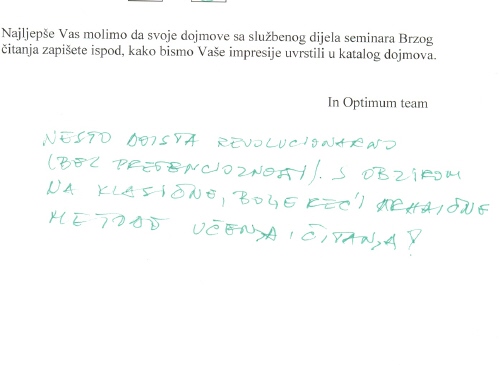 Najljepše Vas molimo da svoje dojmove sa službenog dijela seminara Brzog
čitanja zapišete ispod, kako bismo Vaše impresije uvrstili u katalog dojmova.
In Optimum team
NEŠTO DOISTA REVOLUCIONARNO
(BEZ PRETENCIOZNOSTI). S OBZIROM
NA KLASIČNE, BOLJE REĆI ARHAIČNE
METODE UČENJA I ČITANJA!